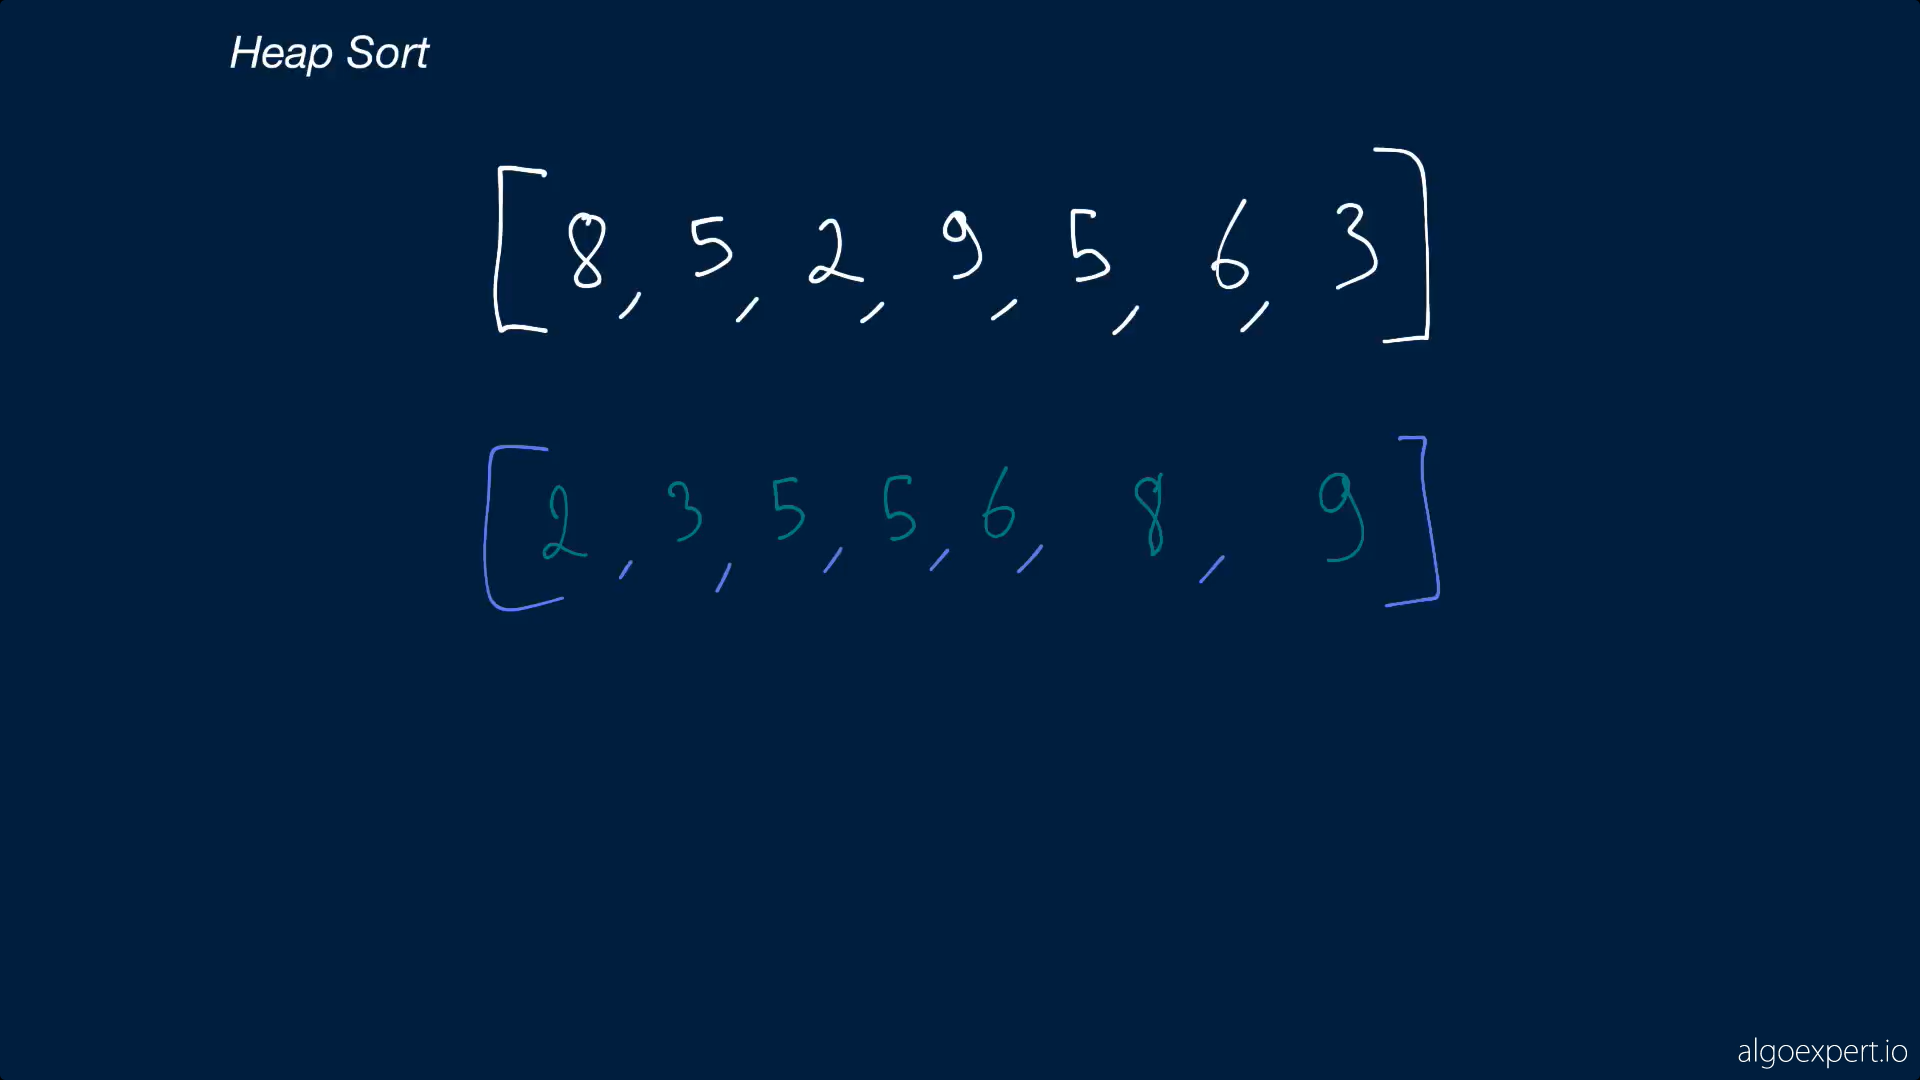 Heap Sort
[8, 5, 2, 9, 5, 6, 3]
[2, 3, 5, 5, 6, 8, 9]
algoexpert.io